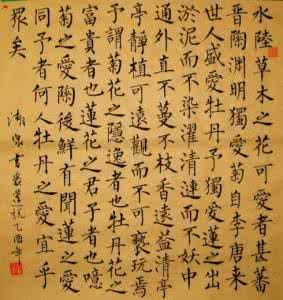 水陸草木之花可愛者甚蕃
晉陶淵明獨愛菊自李唐来
世人盛愛牡丹予獨愛蓮之出
淤泥而不染濯清漣而不妖中
通外直不蔓不枝香遠益清亭
亭靜植可遠觀而不可褻玩焉
予謂菊花之隱逸者也牡丹花之
富貴者也蓮花之君子者也噫
菊之愛陶後鮮有聞蓮之愛
同予者何人牡丹之愛宜乎
眾矣
書愛蓮說乙酉年